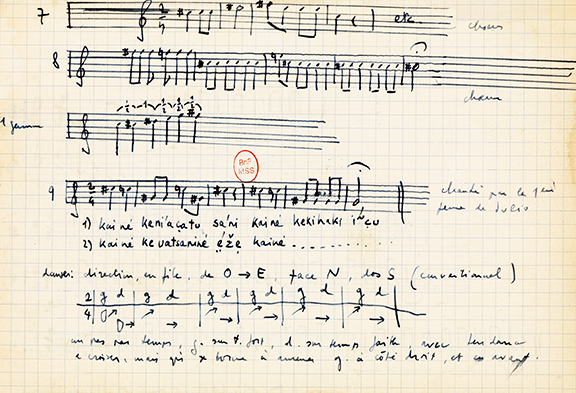 7 2/4 etc. chœur
8
chœur
1 gamme ½ ½ ½
BnF MSS
9 2/4 chanté par la
femme de Julio
1) kainé keniaçatu sa'ni kainé kekihaki iñçu
2) kainé kevatsaniné ẹ́žẹ kainé ..........
danse: direction, en file, de O → E, face N, dos S (conventionnel)
2/4 g d g d g d g d g d g d
un pas par temps, g. sur t. fort, d. sur temps faible, avec tendance
à croiser, mais qui à g. à côté droit, et en avant.